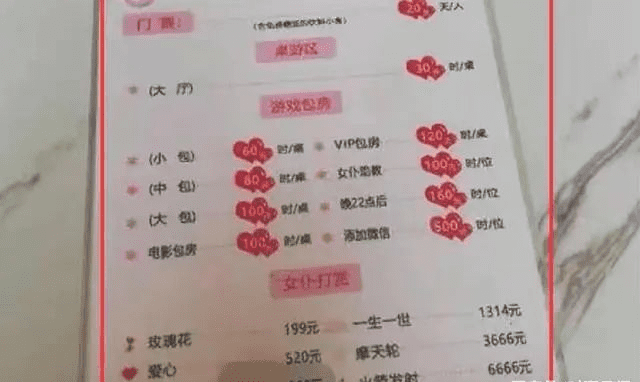 门票： 20 天/人
桌游区
(大厅) 30 时/桌
游戏包房
(小包) 60 时/桌 VIP包房 120 时/桌
(中包) 80 时/桌 女仆陪教 100 时/位
(大包) 100 时/桌 晚22点后 160 时/位
电影包房 100 时/桌 添加微信 500 时/位
女仆打赏
玫瑰花 199元 一生一世 1314元
爱心 520元 摩天轮 3666元
6666元